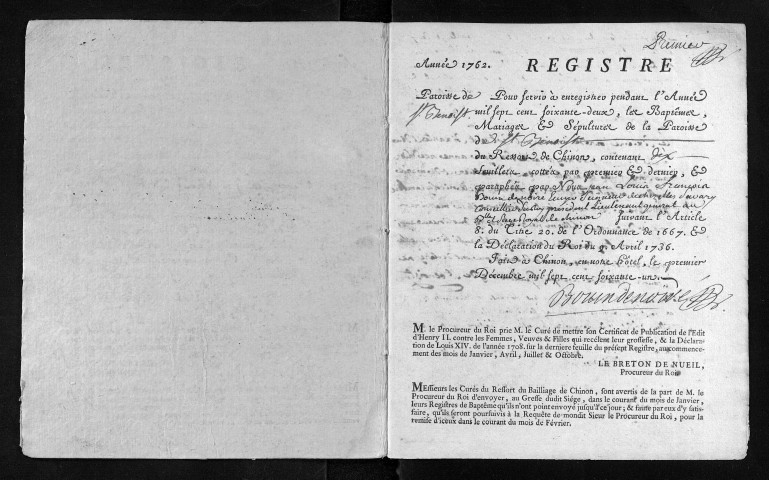 Premier
Année 1762. REGISTRE
Paroisse de
St Benoist.
Pour servir à enregistrer pendant l'Année
mil sept cent soixante-deux, les Baptêmes,
Mariages & Sépultures de la Paroisse
de St Benoist
du Ressort de Chinon, contenant dix
feuillets cottés par premier & dernier, &
paraphés par Nous Jean Louis François
Lieutenant general au
Siege Royal de Chinon Suivant l'Article
8. du Titre 20. de l'Ordonnance de 1667. &
la Déclaration du Roi du 9. Avril 1736.
Fait à Chinon, en notre Hôtel, le premier
Décembre mil sept cent soixante-un.
M. le Procureur du Roi prie M. le Curé de mettre son Certificat de Publication de l'Edit
d'Henry II. contre les Femmes, Veuves & Filles qui recélent leur grossesse, & la Déclara-
tion de Louis XIV. de l'année 1708. sur la derniere feuille du présent Registre, au commence-
ment des mois de Janvier, Avril, Juillet & Octobre.
LE BRETON DE NUEIL,
Procureur du Roi.
MEssieurs les Curés du Ressort du Bailliage de Chinon, sont avertis de la part de M. le
Procureur du Roi d'envoyer, au Greffe dudit Siége, dans le courant du mois de Janvier,
leurs Registres de Baptême qu'ils n'ont point envoyé jusqu'à ce jour; & faute par eux d'y satis-
faire, qu'ils seront poursuivis à la Requête de mondit Sieur le Procureur du Roi, pour la
remise d'iceux dans le courant du mois de Février.